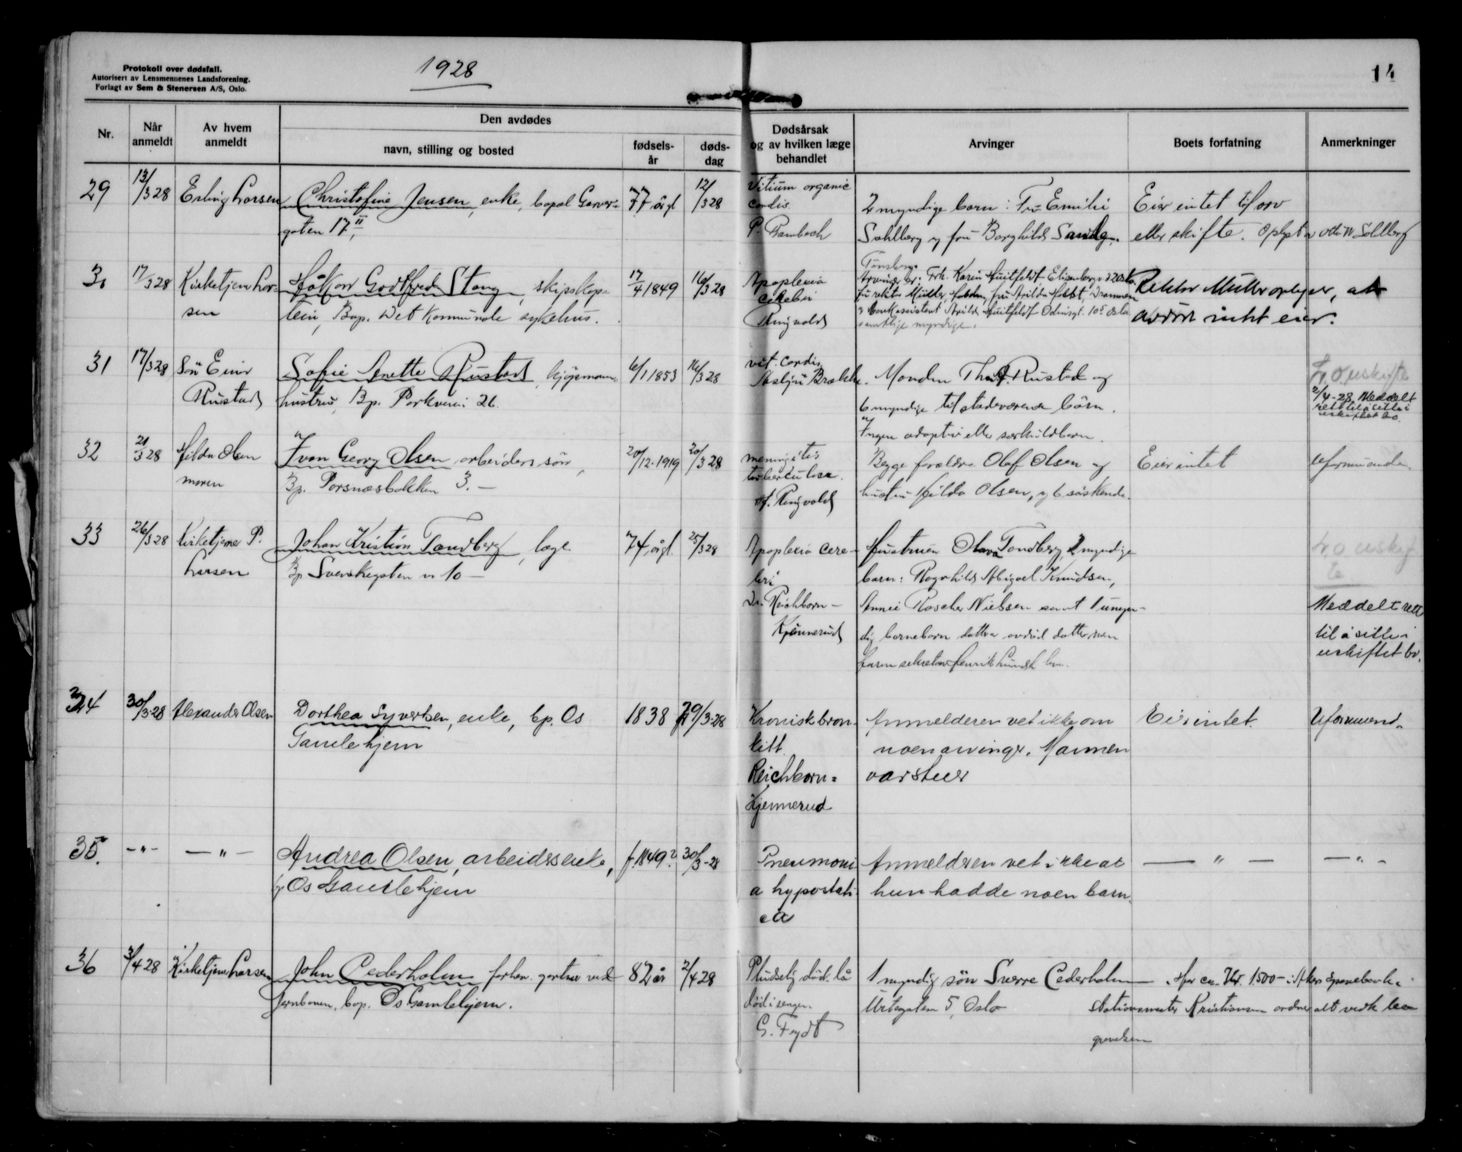 Protokoll over dødsfall.
Autorisert av Lensmennenes Landsforening.
Forlagt av Sem & Stenersen A/S, Oslo.
1928
14
Nr.
Når anmeldt
Av hvem anmeldt
Den avdødes
navn, stilling og bosted
fødsels-år
døds-dag
Dødsårsak og av hvilken læge behandlet
Arvinger
Boets forfatning
Anmerkninger
29 13/3 28 Erling Larsen Christofine Jensen, enke, bopæl Garver- 77 årgl 12/3 28 Vitium organic
gaten 17 II cordis
P. Tambech
2 myndige barn: Fru Emilie
Sahlberg og fru Borghild
Eier intet til arv
eller skifte. Sahlberg
30 17/3 28 Kirketjener Lar-
sen
Håkon Godtfred Stang, skipskap-
tein, Bop. Det Kommunale sykehus.
17/4 1849 16/3 28
Apoplexia
cerebri
Ringvold
Tønsberg.
Frk. Karin Huitfeldt
samtlige myndige.
Rektor Müller oplyser, at
avdøde intet eier.
31 17/3 28 Søn Einar
Rustad
Sofie Anette Rustad, kjøpmanns
hustru, Bp. Parkveien 26.
6/1 1853 16/3 28
vit. cordis
Asbjørn Brække
Manden Th. Rustad og
6 myndige tilstedeværende børn.
Ingen adoptiv eller særkuldbarn.
Zo uskifte
2/4-28 Meddelt
rett til å sitte i
uskiftet bo
32 21/3 28 Hilda Olsen
moren
Ivan Georg Olsen arbeiders søn,
Bp. Porsnesbakken 3. –
20/12-1919 20/3 28
meningitis
tuberculosa.
Ringvold
Begge forældre Olaf Olsen og
hustru Hilda Olsen, og 6 søskende.
Eier intet
Uformuende.
33 26/3 28 Kirketjener P.
Larsen
Johan Kristian Tandberg, læge
Bp. Svenskegaten n 10 –
74 årgl. 25/3 28
Apoplexia cere-
bri
Dr. Reichborn-
Kjennerud
Hustruen Olava Tandberg 2 myndige
barn: Ragnhild Abigael Knudsen,
Annie Roscher Nielsen samt 1 umyn-
dig barnebarn datter avdød datter
Zo uskif
te
Meddelt rett
til å sitte i
uskiftet bo.
34 30/3-28 Alexander Olsen Dorthea Syvertsen, enke, bp. Os
Gamlehjem
1838 29/3-28
Kronisk bron-
kitt.
Reichborn-
Kjennerud
Anmelderen vet ikke om
noen arvinger. Mannen
var
Eier intet.
Uformuend.
35. – " – – " – Andrea Olsen, arbeidsenke,
Os Gamlehjem
f. 1849? 30/3-28
Pneumoni
a hypostati-
ca
Anmelderen vet ikke at
hun hadde noen barn.
– " –
– " –
36 3/4 28 Kirketjener Larsen John Cederholm forhen. gartner ved
Jernbanen, bop. Os Gamlehjem.
82 år 2/4 28
Pludselig død. Lå
død i sengen.
G. Fydt
1 myndig søn Sverre Cederholm
Urtegaten 5, Oslo
Har ca. Kr. 1500 – i Akers sparebank.
Stationsmester Kristiansen ordner alt vedk be-
gravelsen